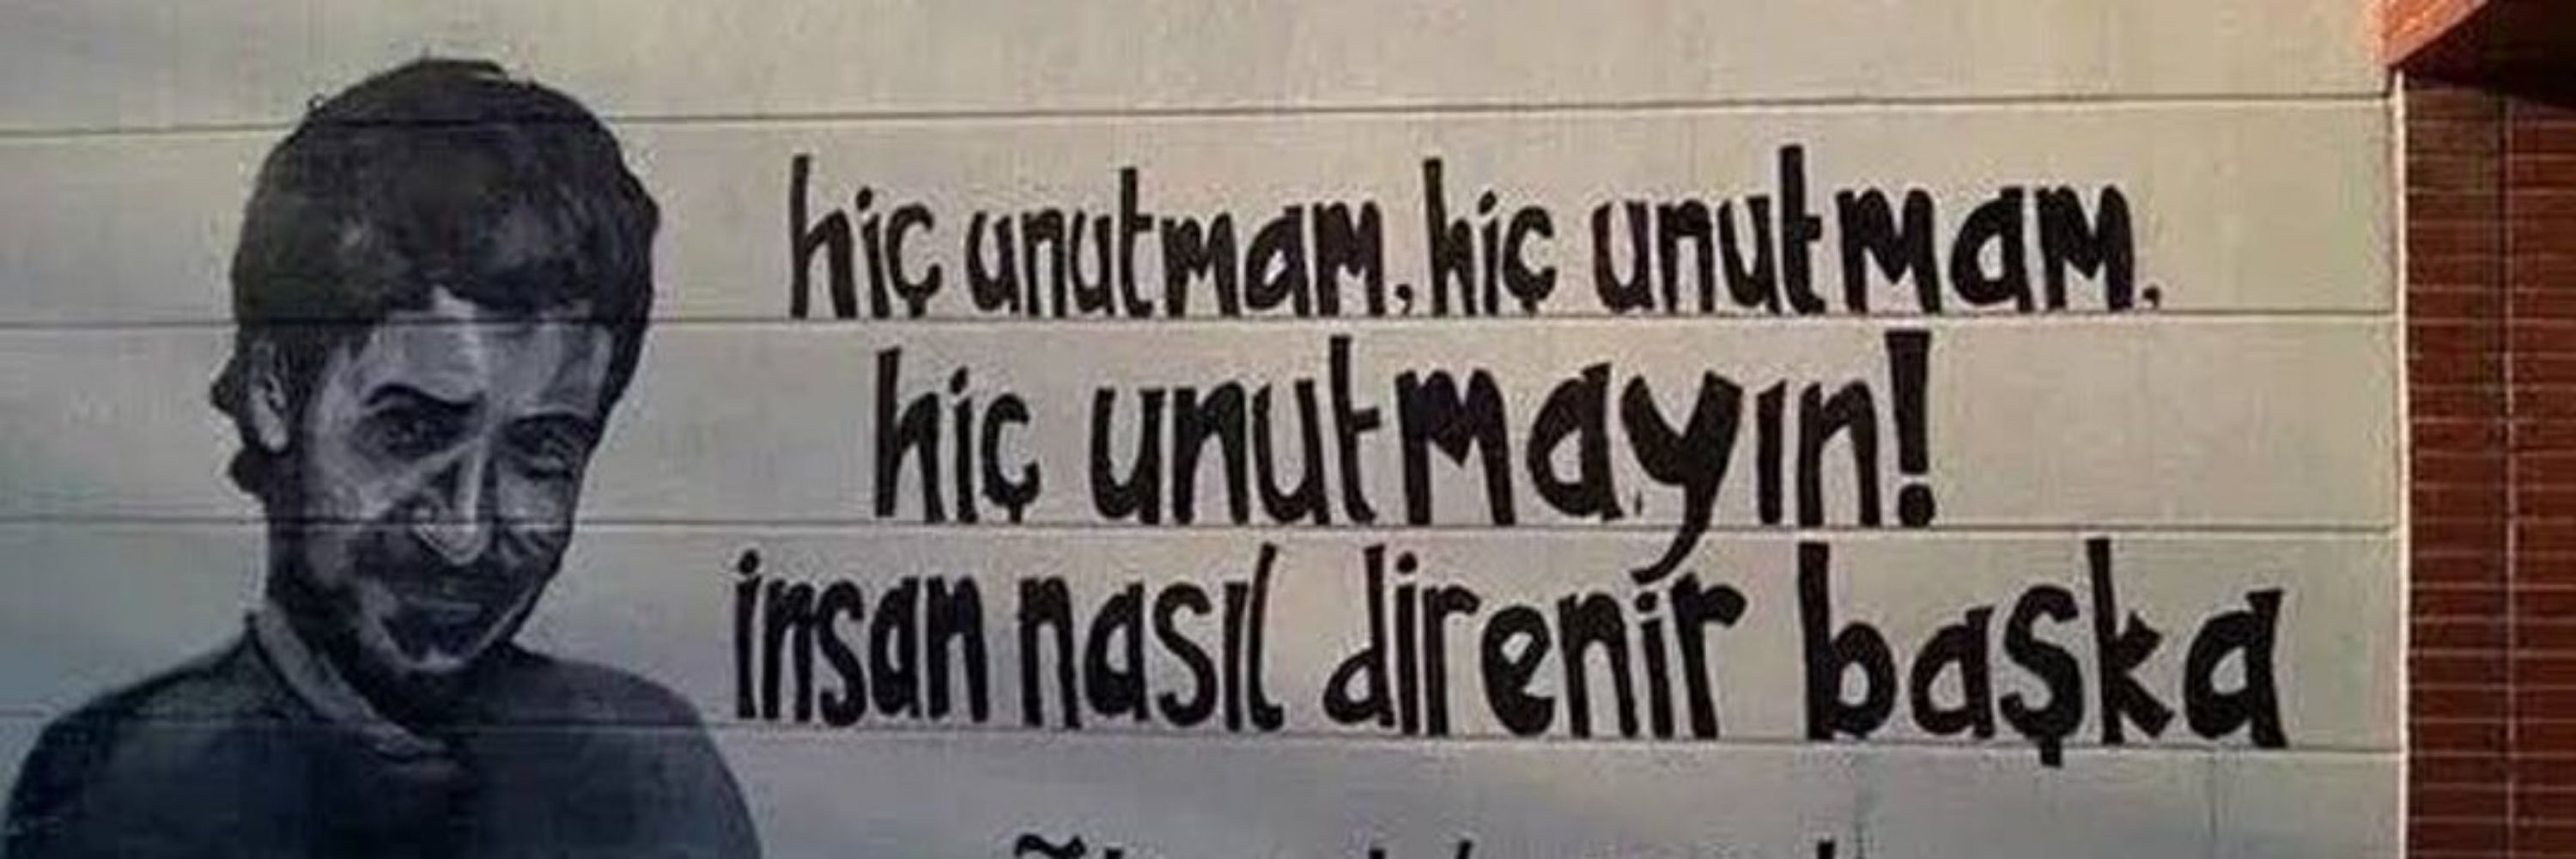 hiç unutmam, hiç unutmam,
hiç unutmayın!
insan nasıl direnir başka